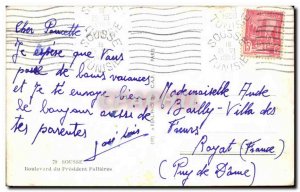 SOUSSE
TUNISIE
SOUSSE
TUNISIE
Cher Poucette
J'espère que vous
passe de bonnes vacances
et je t'envoye bien
le bonjour aussi de
tes parentes
Mademoiselle Aude
Bailly - Villa des
Fleurs
Royat (France)
(Puy de Dôme)
70 SOUSSE
Boulevard du Président Fallières